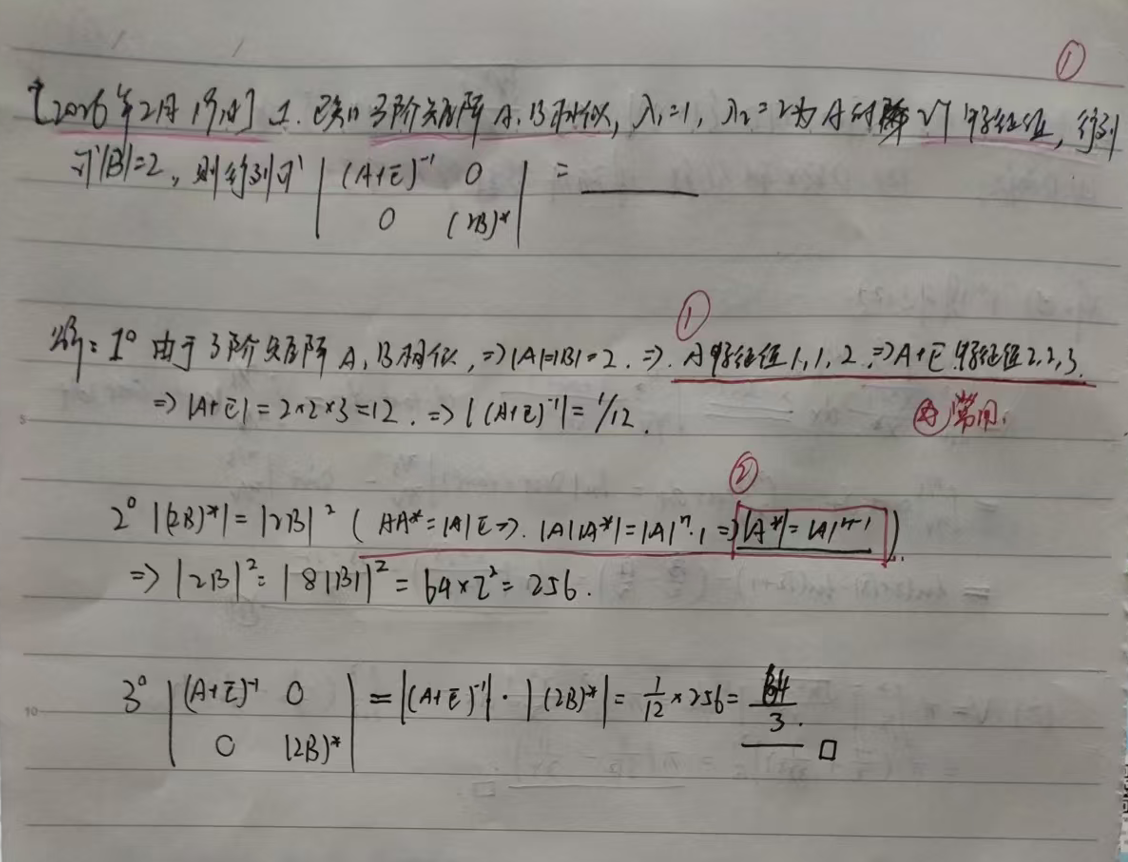 ①
【2026年2月19日】1. 已知3阶矩阵A,B相似, λ₁=1, λ₂=2为A的两个特征值, 行列
式|B|=2, 则行列式 | (A+E)⁻¹ 0 | = ______
| 0 (2B)* |
①
解: 1° 由于3阶矩阵A,B相似, ⇒|A|=|B|=2. ⇒. A特征值1,1,2. ⇒A+E特征值2,2,3.
⇒ |A+E| = 2×2×3=12. ⇒ |(A+E)⁻¹| = 1/12.
常用.
②
2° |(2B)*| = |2B|² ( AA*=|A|E ⇒. |A||A*|=|A|ⁿ·1 ⇒ |A*|=|A|ⁿ⁻¹ ).
⇒ |2B|² = |8|B||² = 64×2² = 256.
3° | (A+E)⁻¹ 0 | = |(A+E)⁻¹| · |(2B)*| = 1/12 ×256 = 64/3. □
| 0 (2B)* |